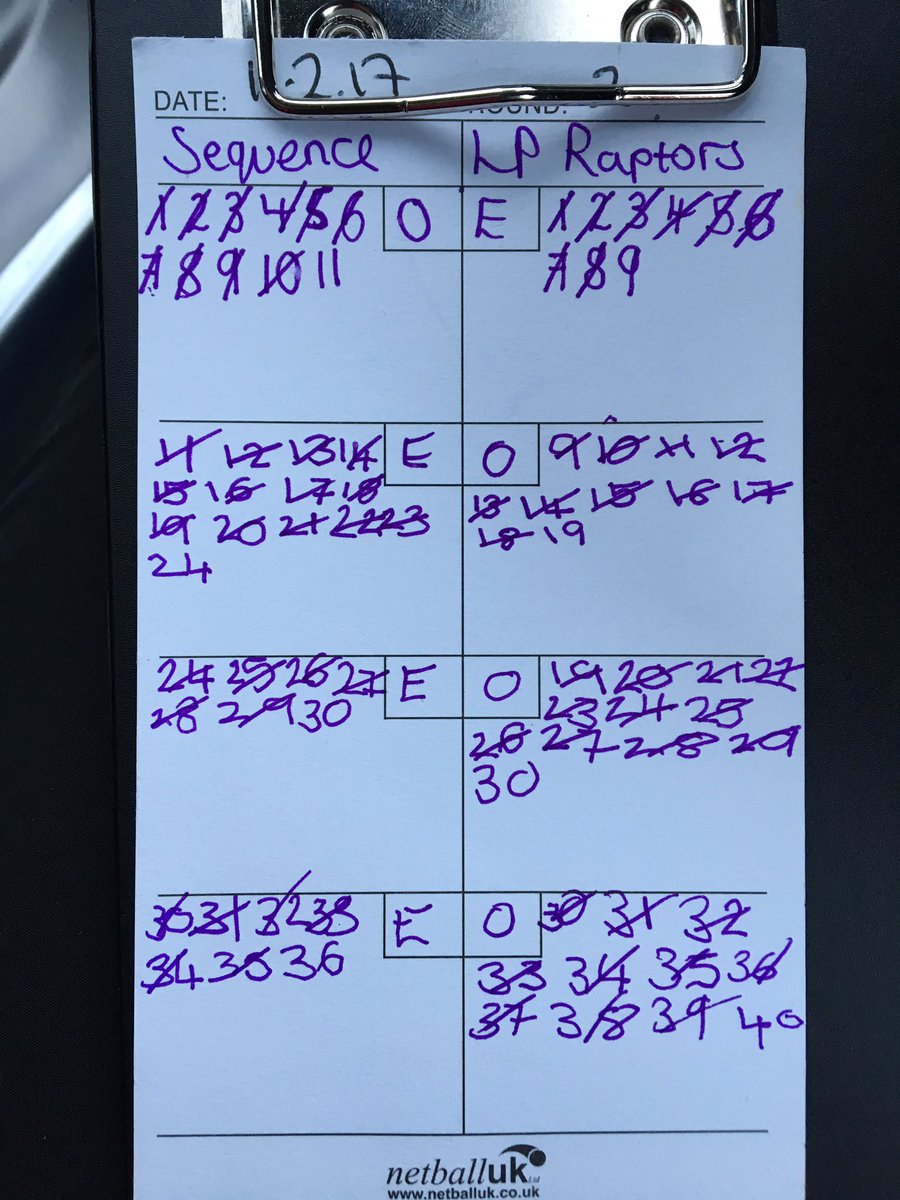 DATE: 2.17
ROUND:
Sequence LP Raptors
1 2 3 4 5 6 O E 1 2 3 4 5 6
7 8 9 10 11 7 8 9
11 12 13 14 E O 9 10 11 12
15 16 17 18 13 14 15 16 17
19 20 21 22 23 18 19
24
24 25 26 27 E O 19 20 21 22
28 29 30 23 24 25
26 27 28 29
30
30 31 32 33 E O 30 31 32
34 35 36 33 34 35 36
37 38 39 40
netballuk Ltd
www.netballuk.co.uk